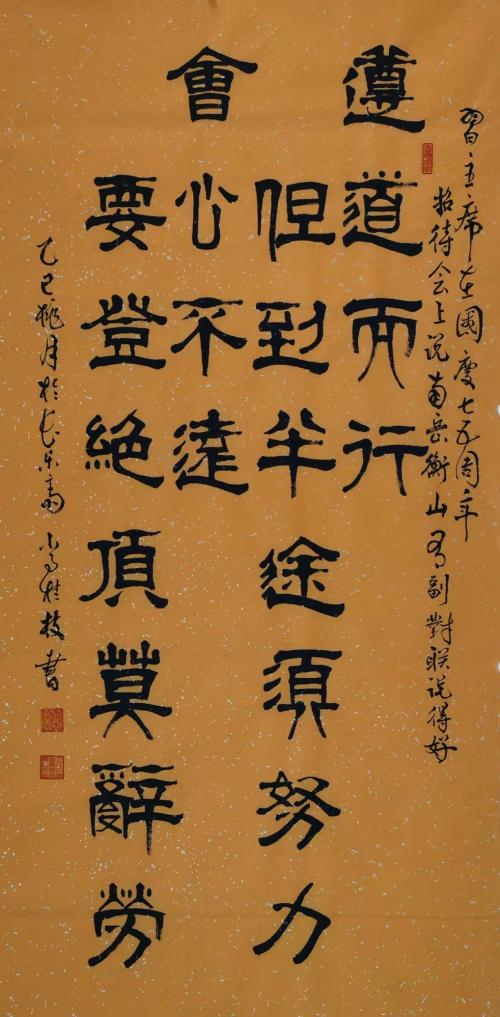 習主席在國慶七五周年
招待会上说南岳衡山有副對联说得好
遵道而行
但到半途須努力
會心不遠
要登絕頂莫辭勞
乙巳桃月於长乐斋尚桂枝書